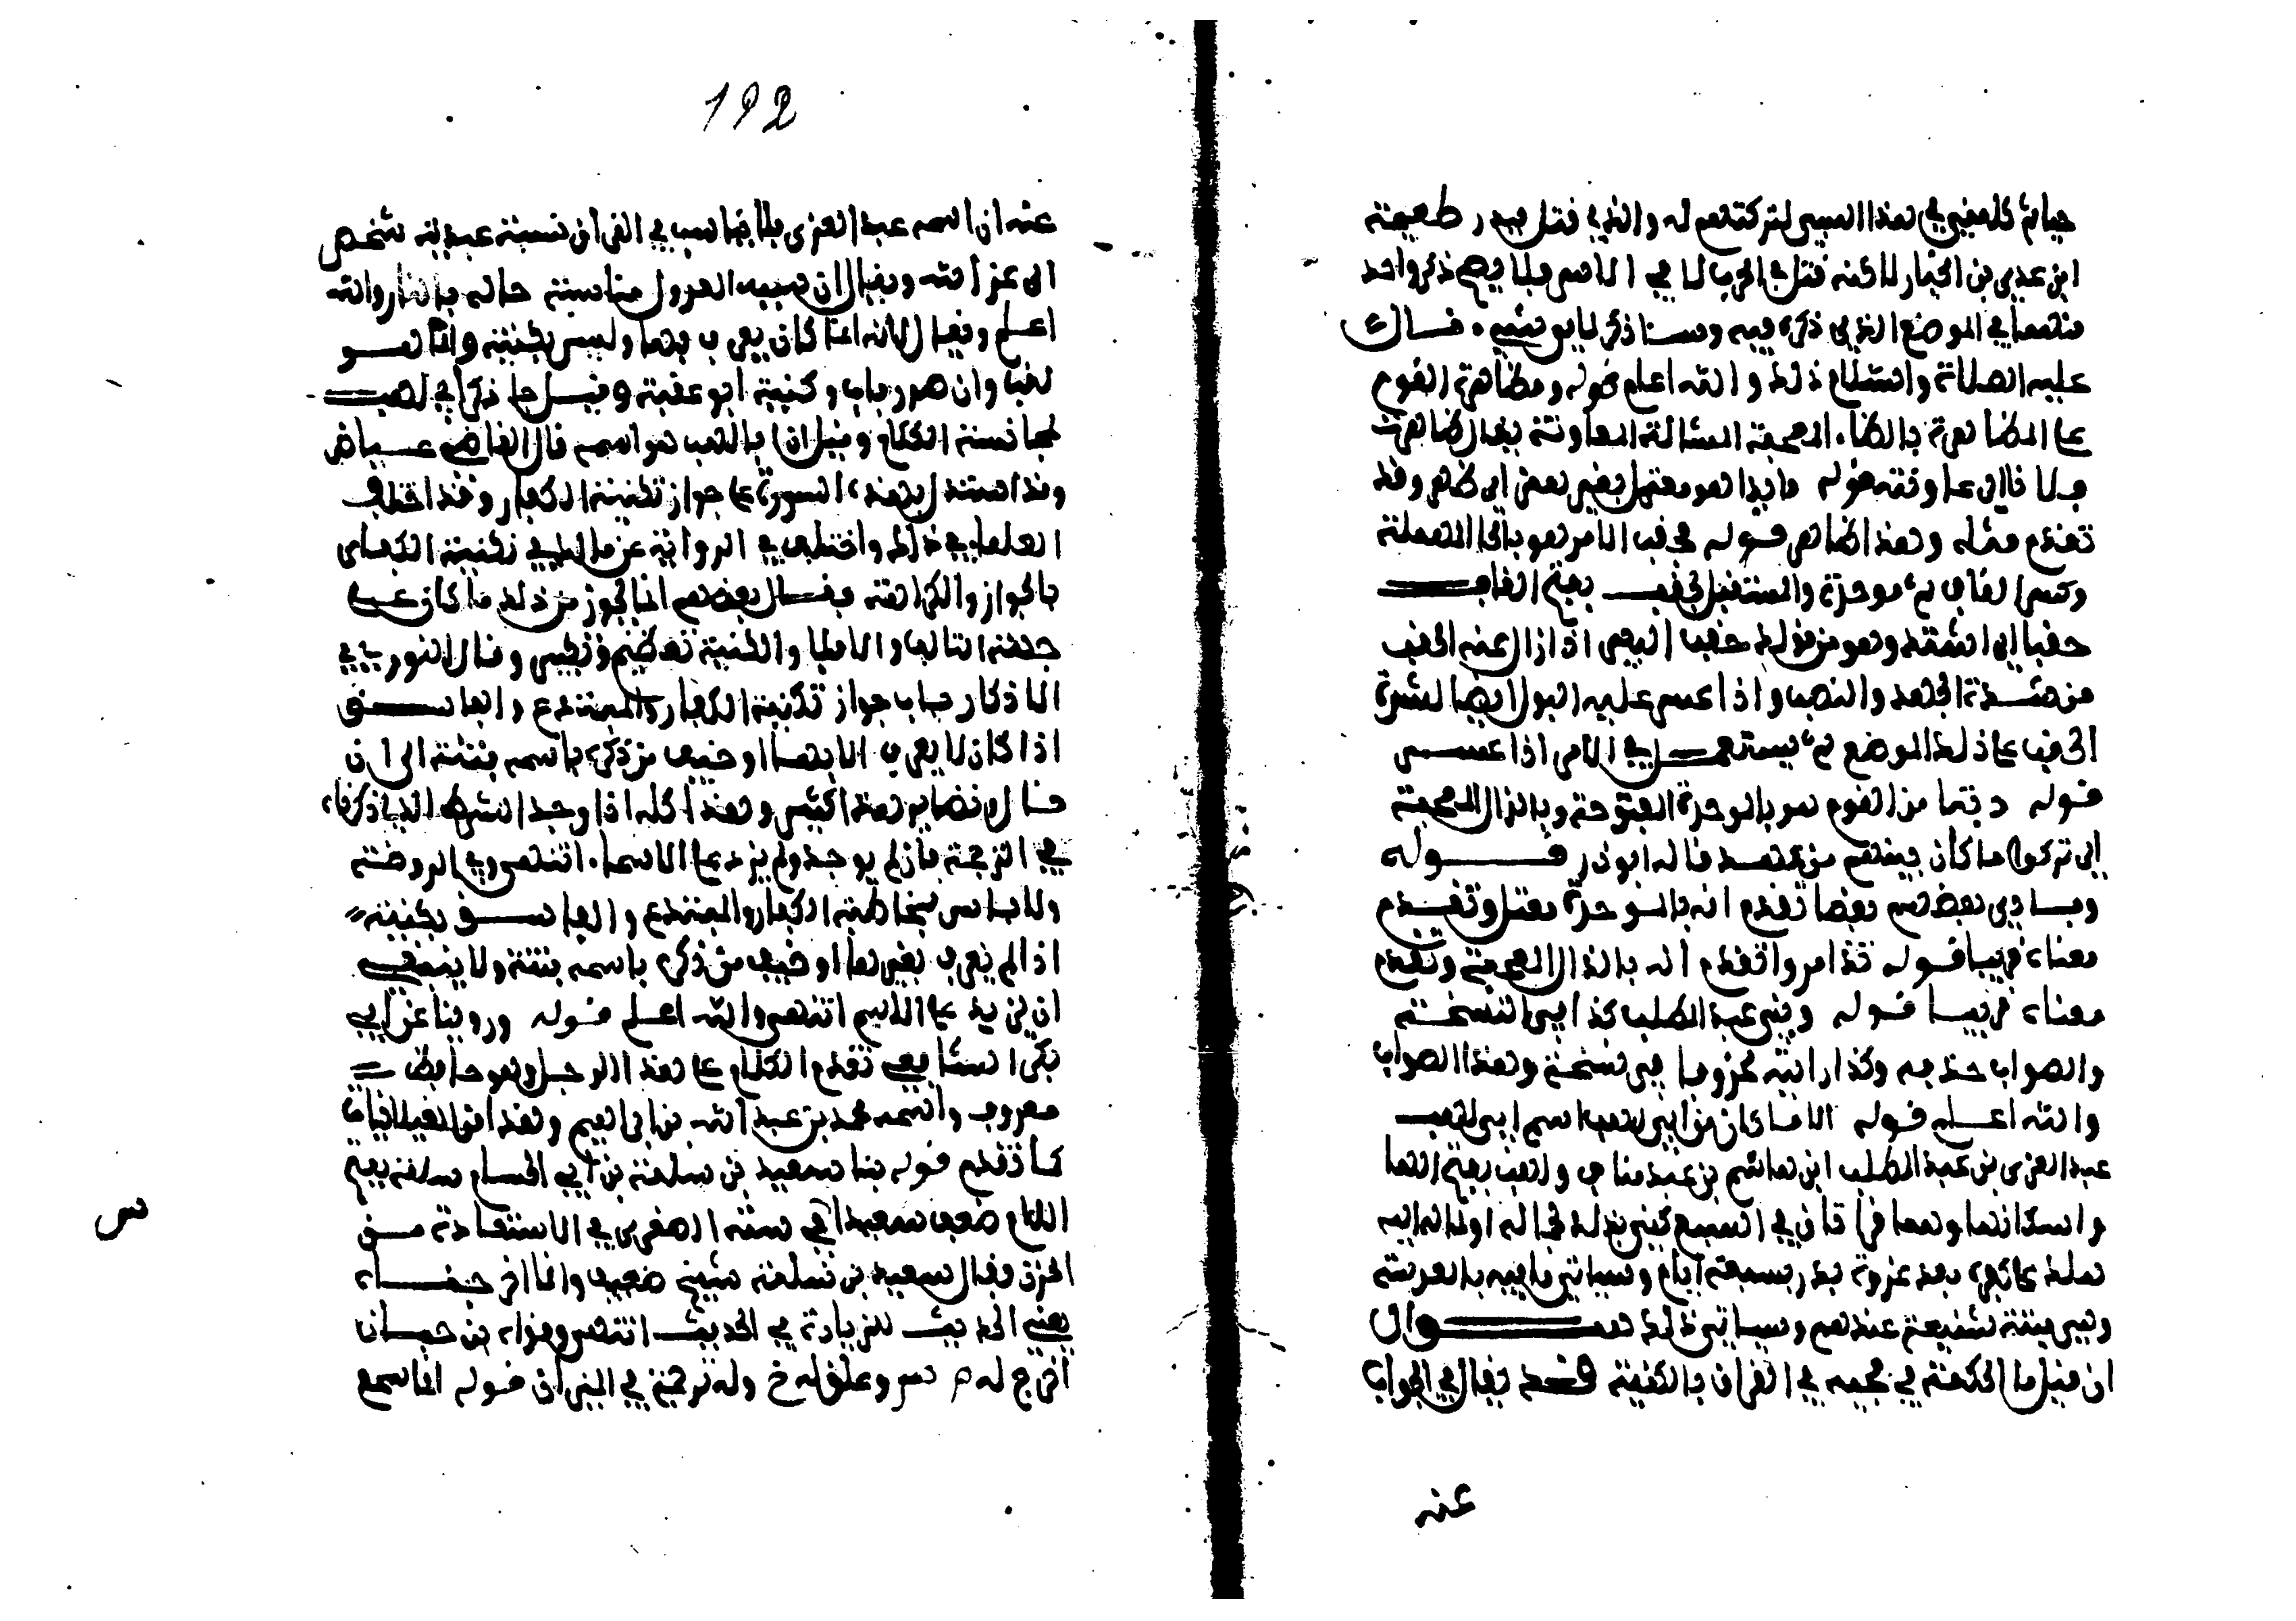 حيا ثم كلمني في هذا السبي لتركتهم له والذي قتل ببدر طعيمة
ابن عدي بن الخيار لا كنه قتل في الحرب لا في الاسر فلا يصح ذكر واحد
منهما في الموضع الذي ذكره فيه وسنا ذكر لا بوشيه . قال
عليه الصلاة والسلام ذلك والله اعلم قوله ومظاهرة القوم
على المظاهرة بالظاء المعجمة المشالة المعاونة يقال ظاهرت
فلانا اي عاونته قوله ما بدا هو معتل بغير همز اي ظهر وقد
تقدم مثله وهذا ظاهر قوله فحقب الامر هو بالحا المهملة
وكسر القاف ثم موحدة والمستقبل يحقب بفتح القاف
حقبا اي اشتد وهو من قولك حقب البعير اذا زال عنه الحقب
من شدة الجهد والنصب واذا عسر عليه البول ايضا لشدة
الحقب على ذلك الموضع ثم يستعمل في الامر اذا عسر
قوله ونبذا من القوم هو بالموحدة المفتوحة وبالذال المعجمة
اي تركوا ما كان بينهم من عهد قاله ابو ذر قوله
وبادي بعضهم بعضا تقدم انه بالموحدة معتل وتقدم
معناه قريبا قوله تذامروا تقدم انه بالذال المعجمة وتقدم
معناه قريبا قوله وبني عبد المطلب كذا في النسخة
والصواب حذفه وكذا رايته محزوما في نسخة وهذا الصواب
والله اعلم قوله الا ما كان من ابي لهب اسم ابي لهب
عبد العزى بن عبد المطلب ابن هاشم بن عبد مناف ولهب بفتح الها
واسكانها وهما قراءتان في السبع كني بذلك لجماله او لماله اليه
هلك على كفره بعد غزوة بدر بسبعة ايام وسياتي ما فيه بالعدسة
وهي ميتة شنيعة عندهم وسياتي ذلك سؤال
ان قيل ما الحكمة في مجيه في القران بالكنية قد يقال في الجواب
عنه
192
عنه ان اسمه عبد العزى فلا يناسب في القران نسبة عبدية شخص
الى غير الله ويقال ان سبب العدول مناسبة حاله بالنار والله
اعلم وقيل لانه انما كان يعرف بها وليس بكنية وانما هو
لقب وان هو رباب وكنيته ابو عقبة وقيل ما ذكرا في لهب
لمجانسة الكلام وقيل ان ابا لهب هو اسمه قال القاضي عياض
وقد استدل بهذه السورة على جواز تكنية الكفار وقد اختلف
العلماء في ذلك واختلف في الرواية عن مالك في تكنية الكفار
بالجواز والكراهة وقال بعضهم انما يجوز من ذلك ما كان على
جهة التالف والا فلا والكنية تعظيم وتكبير وقال النوري في
الاذكار باب جواز تكنية الكفار والمبتدع والفاسق
اذا كان لا يعرف الا بها او خيف من ذكره باسمه فتنة الى ان
قال ونظاير هذا كثير وهذا كله اذا وجد الشرط الذي ذكرناه
في الترجمة فان لم يوجد ولم يزد على الاسم انتهى وفي الروضة
ولا باس بمخاطبة الكفار والمبتدع والفاسق بكنيته
اذا لم يعرف بغيرها او خيف من ذكره باسمه فتنة ولا ينبغي
ان يزيد على الاسم انتهى والله اعلم قوله وروينا عن ابي
بكر الشافعي تقدم الكلام على هذا الرجل وهو حافظ
معروف واسمه محمد بن عبد الله بن ابراهيم وهذا
كما تقدم قوله بنا سعيد بن سلمة بن ابي الحسام سلمة بفتح
اللام ضعف سعيدا في سننه الصغرى في الاستعاذة من
الحزن وقال سعيد بن سلمة شيخ ضعيف وانما اخرجناه
يعني الحديث للزيادة في الحديث انتهى وقواه بن حبان
اخرج له م س وعلق له خ وله ترجمة في الميزان قوله انا سمع
س